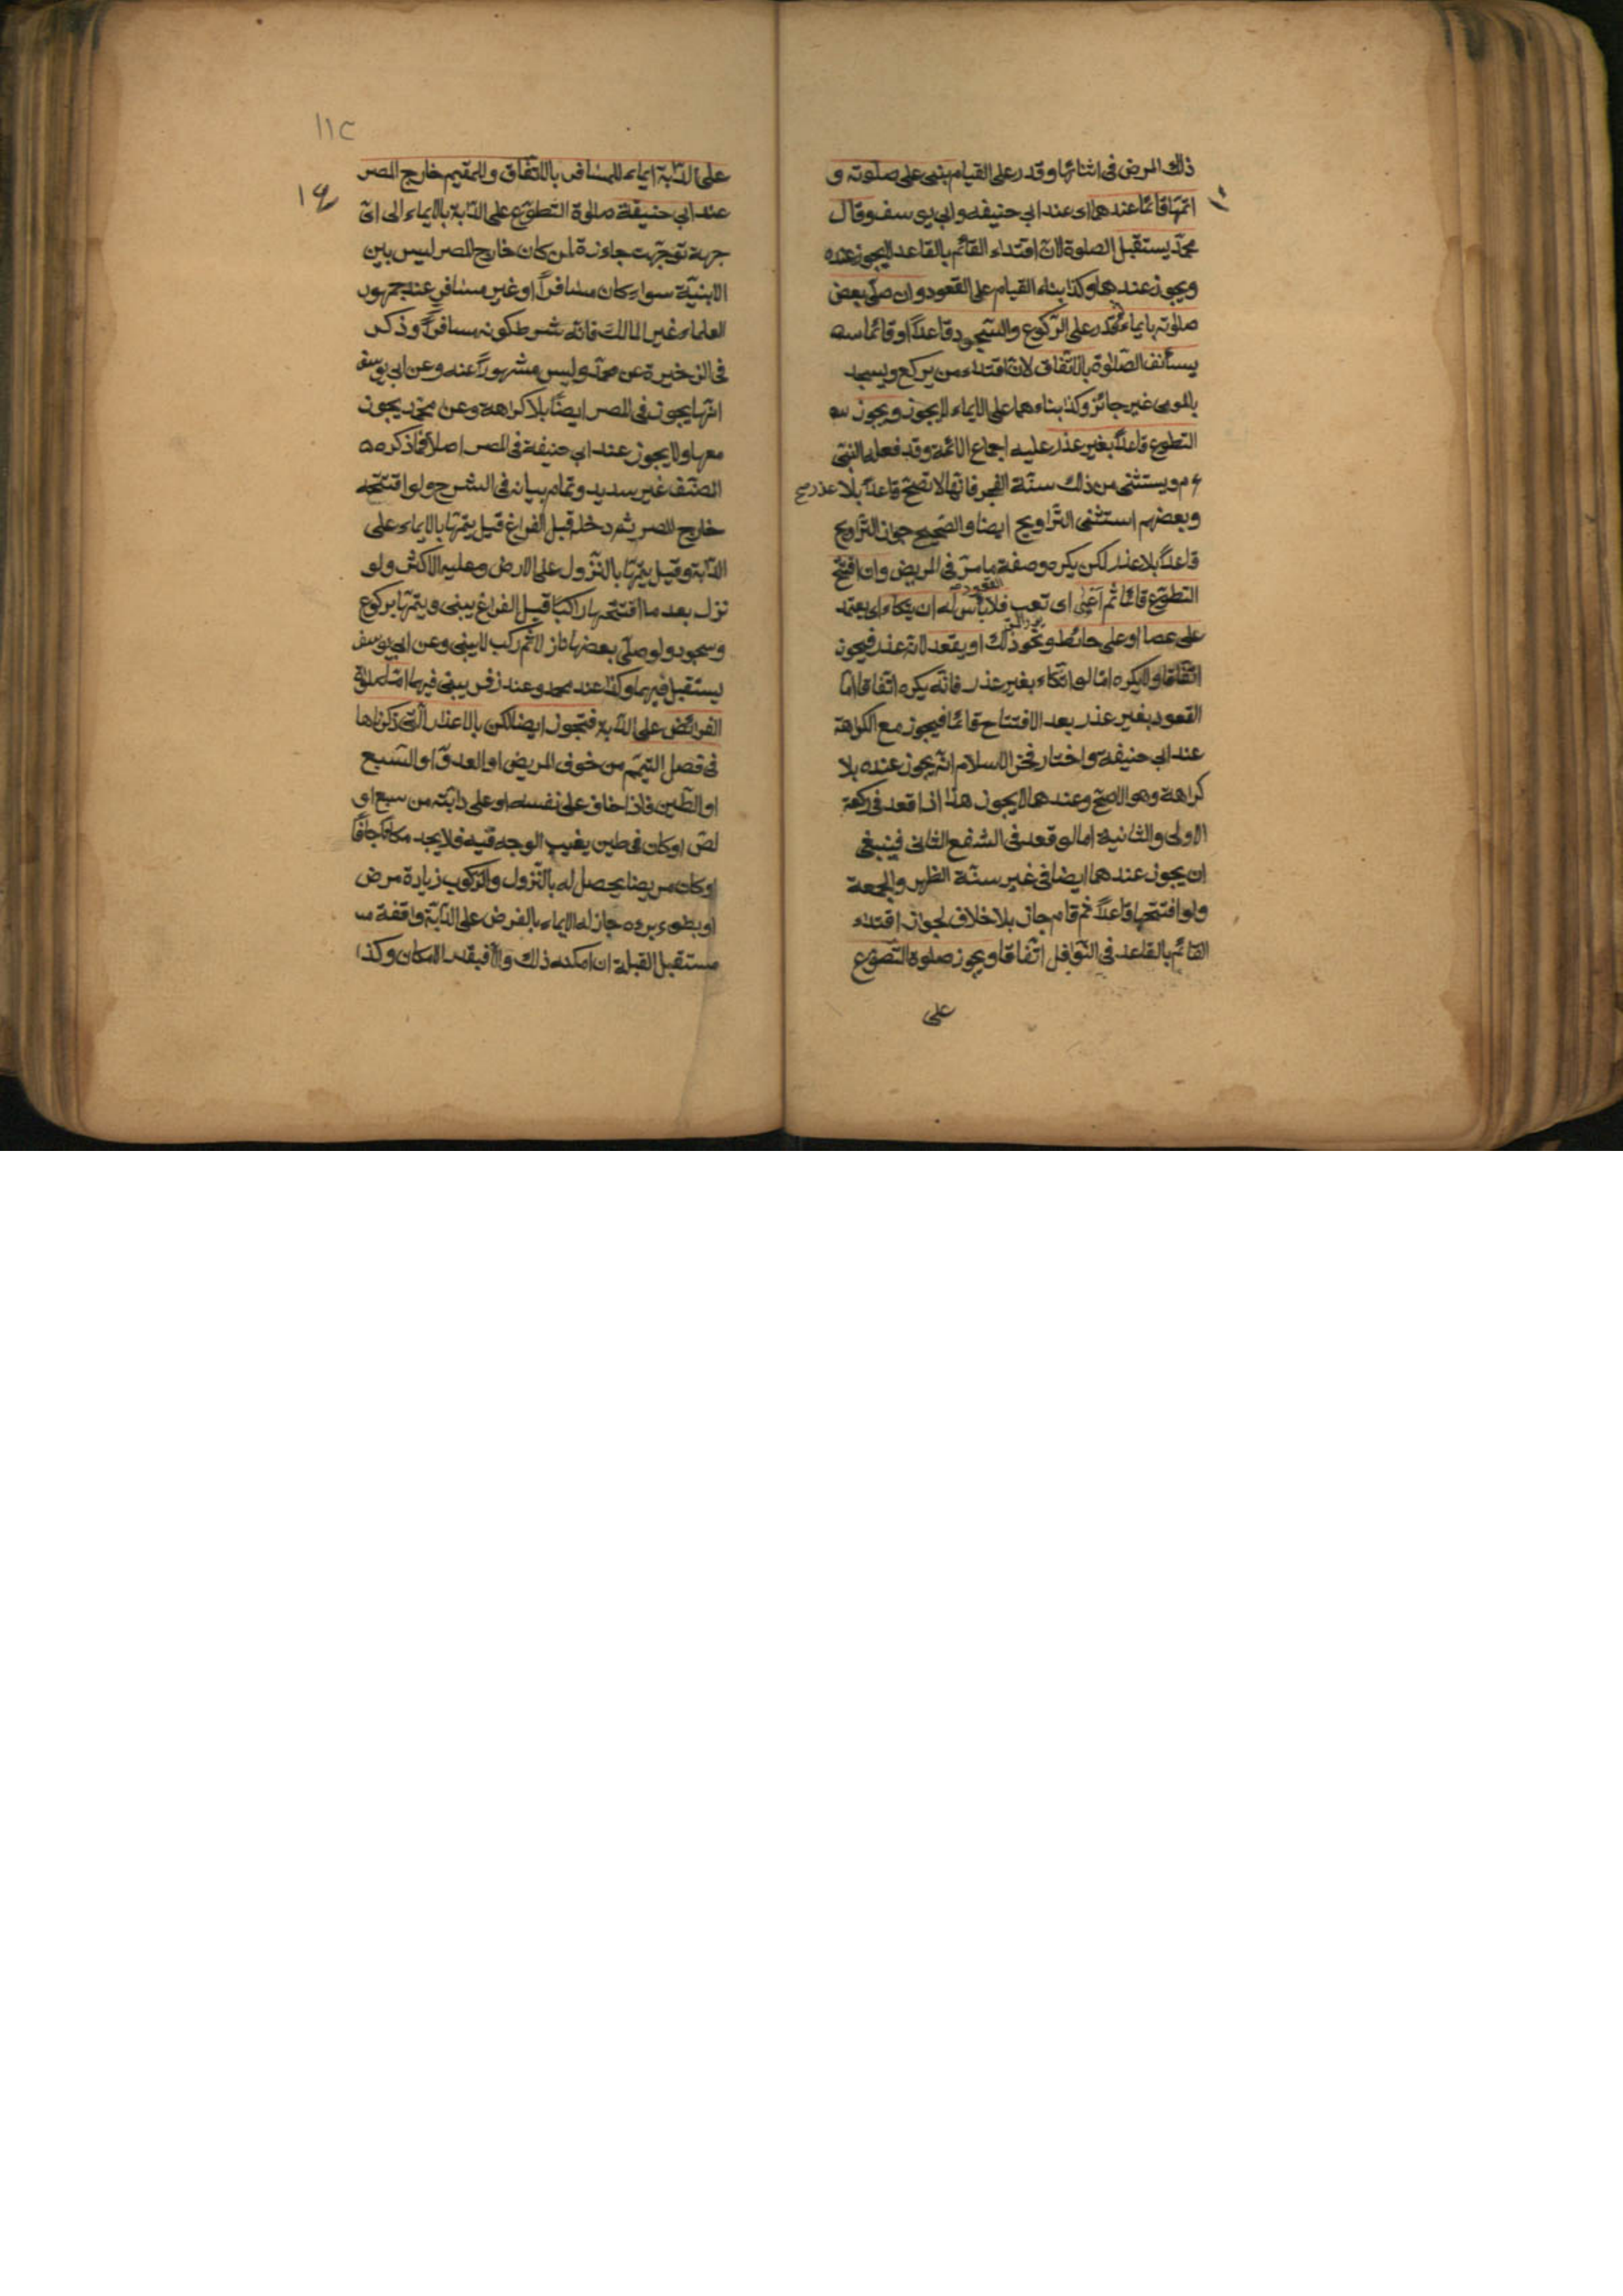 ذلك المرض فى اثنائها وقدر على القيام بنى على صلوته و
اتمها قائما عندهما اى عند ابى حنيفه وابى يوسف وقال
محمّد يستقبل الصلوة لانّ اقتداء القائم بالقاعد لايجوز عنده
ويجوز عندهما وكذا بناء القيام على القعود وان صلّى بعض
صلوته بايماء ثم قدر على الرّكوع والسّجود قاعداً او قائما
يستأنف الصّلوة بالاتّفاق لانّ اقتداء من يركع ويسجد
بالمومى غير جائز وكذا بناءهما على الايماء لايجوز ويجوز
التطوع قاعداً بغير عذر عليه اجماع الائمة وقد فعله النبىّ
ع م ويستثنى من ذلك سنّة الفجر فانّها لا تصحّ قاعداً بلا عذر صح
وبعضهم استثنى التّراويح ايضا والصّحيح جواز التّراويح
قاعداً بلا عذر لكن يكره وصفة مامرّ فى المريض وان افتتح
القعود
التطوّع قائما ثم اعيى اى تعب فلا بأس له ان يتّكاء اى يعتمد
على عصا او على حائط ونحو ذلك او يقعد لانه عذر فيجوز
اتّفاقا ولايكره امّا لو اتّكاء بغير عذر فانّه يكره اتّفاقا امّا
القعود بغير عذر بعد الافتتاح قائما فيجوز مع الكراهة
عند ابى حنيفة واختار فخر الاسلام انّه يجوز عنده بلا
كراهة وهو الاصحّ وعندهما لايجوز هذا اذا قعد فى ركعة
الاولى والثانية امالو قعد فى الشفع الثانى فينبغى
ان يجوز عندهما ايضا فى غير سنّة الظهر والجمعة
ولو افتتحها قاعداً ثم قام جاز بلا خلاف لجواز اقتداء
القائم بالقاعد فى النّوافل اتّفاقا ويجوز صلوة التّطوّع
على
١١٢
على الدّابة ايماء للمسافر بالاتّفاق وللمقيم خارج المصر
عند ابى حنيفة صلوة التّطوّع على الدّابة بالايماء الى اىّ
جهة توجّهت جاءزة لمن كان خارج المصر ليس بين
الابنيّة سواء كان مسافراً او غير مسافر عند جمهور
العلماء غير المالك فانّه شرط كونه مسافراً وذكر
فى الزخيرة عن محمّد وليس مشهوراً عنه وعن ابى يوسف
انّها يجوز فى المصر ايضًا بلا كراهة وعن محمّد يجوز
معها ولا يجوز عند ابى حنيفة فى المصر اصلاً فماذكره
المصّنف غير سديد وتمام بيانه فى الشرح ولو افتتحه
خارج المصر ثم دخل قبل الفراغ قيل يتمّها بالايماء على
الدّابة وقيل يتمّها بالنّزول على الارض وعليه الاكثر ولو
نزل بعد ما افتتحها راكبًا قبل الفراغ يبنى ويتمّها بركوع
وسجود ولو صلّى بعضها نازلا ثم ركب لا يبنى وعن ابى يوسف
يستقبل فيهما وكذا عند محمد وعند زفر يبنى فيهما امّا صلوة
الفرائض على الدّابة فتجوز ايضا لكن بالاعذار الّتى ذكرناها
فى فصل التيمّم من خوف المريض او العدوّ او السّبع
او الطّين فاذا خاف على نفسه او على دابّته من سبع او
لصّ او كان فى طين يغيب الوجه فيه فلا يجد مكانا جافّا
او كان مريضا يحصل له بالنّزول والرّكوب زيادة مرض
او بطوء برءه جاز له الايماء بالفرض على الدّابّة واقفة
مستقبل القبلة ان امكنه ذلك والّا فبقدر الامكان وكذا